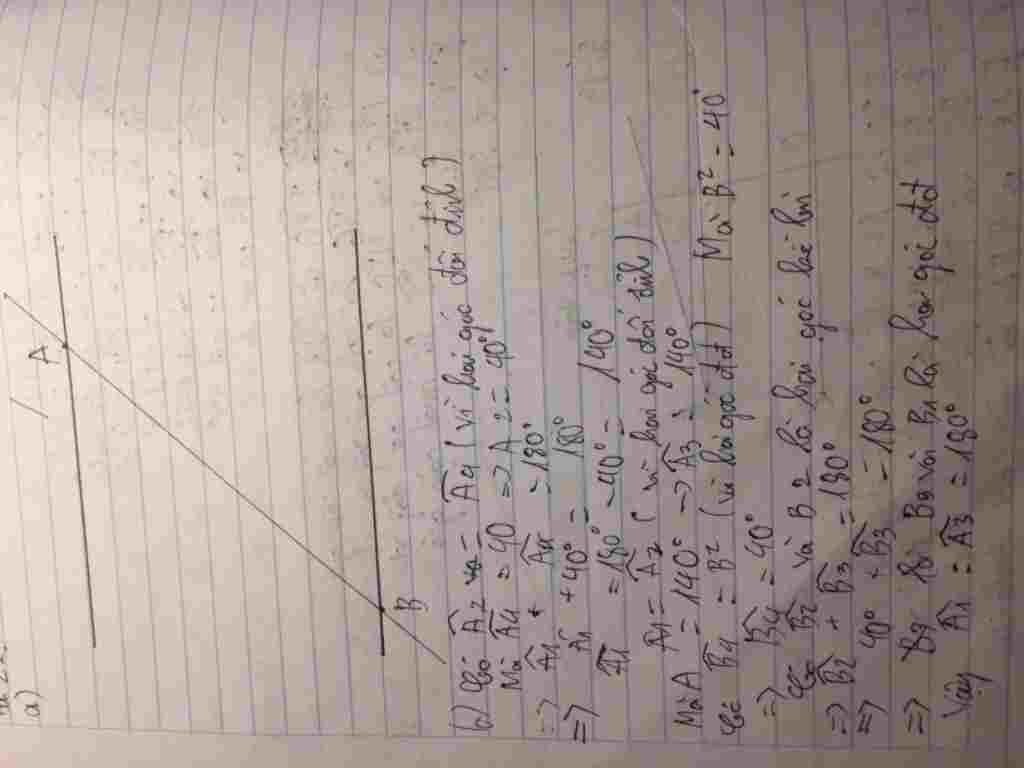 a)
A
B
b) Có Â2 = Â4 (vì hai góc đối đỉnh)
Mà Â4 = 40 => A2 = 40°
=> Â1 + Â4 = 180°
=> Â1 + 40° = 180°
Â1 = 180° - 40° = 140°
Â1 = Â3 (vì hai góc đối đỉnh)
Mà A = 140° -> Â3 = 140°
Có B̂4 = B2 (vì hai góc đđ) Mà B2 = 40°
=> B̂4 = 40°
Có B̂2 và B2 là hai góc kề bù
=> B̂2 + B̂3 = 180°
=> 40° + B̂3 = 180°
=> là B3 và B1 là hai góc đđ
Vậy Â1 = Â3 = 180°